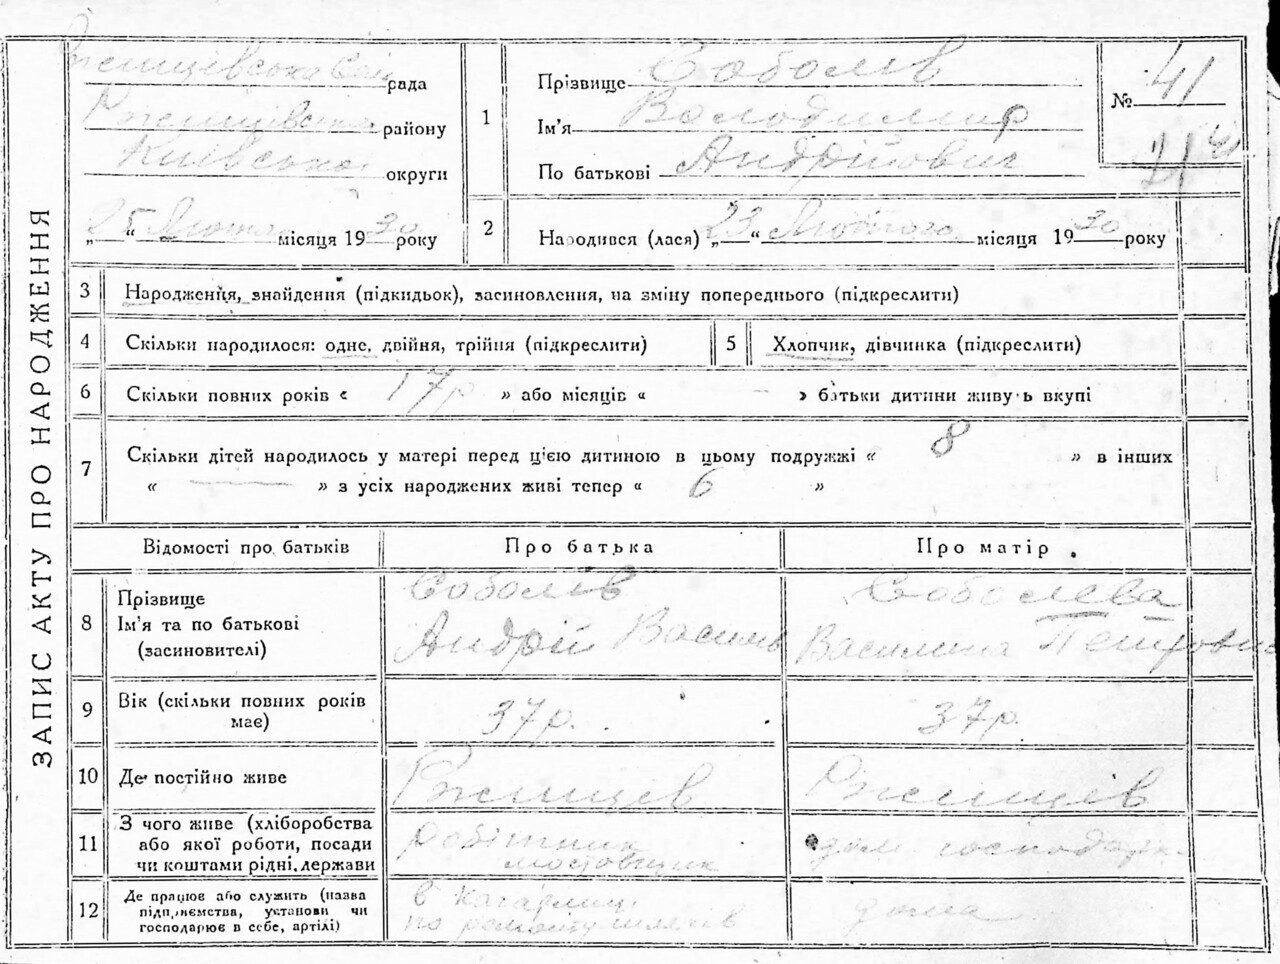 ЗАПИС АКТУ ПРО НАРОДЖЕННЯ
Ржищівська Сел рада
Ржищівська району
Київська округи
„25“ Лютого місяця 1930 року
1
Прізвище Соболів
Ім'я Володимир
По батькові Андрійович
№ 41
41
2
Народився (лася) „23“ Лютого місяця 1930 року
3 Народження, знайдення (підкидьок), засиновлення, на зміну попереднього (підкреслити)
4 Скільки народилося: одне, двійня, трійня (підкреслити)
5 Хлопчик, дівчинка (підкреслити)
6 Скільки повних років « 17р » або місяців « — » батьки дитини живуть вкупі
7 Скільки дітей народилось у матері перед цією дитиною в цьому подружжі « 8 » в інших
« — » з усіх народжених живі тепер « 6 »
Відомості про батьків Про батька Про матір
8 Прізвище
Ім'я та по батькові
(засиновителі)
Соболів
Андрій Василь
Соболєва
Василина Петровн
9 Вік (скільки повних років
має)
37р. 37р.
10 Де постійно живе Ржищев Ржищів
11 З чого живе (хліборобства
або якої роботи, посади
чи коштами рідні, держави
робітник
мостовщик
дом господарк
12 Де працює або служить (назва
підприємства, установи чи
господарює в себе, артілі)
в Кагарлиці
по ремонту шляхів
дома